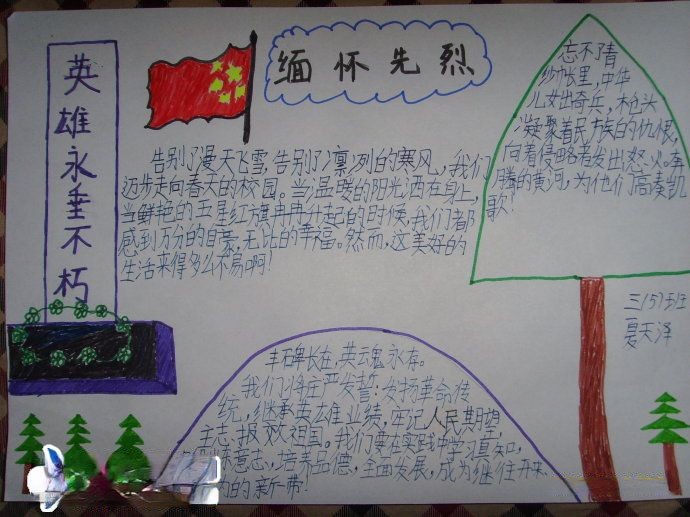 英雄永垂不朽
缅怀先烈
告别了漫天飞雪,告别了凛冽的寒风,我们
迈步走向春天的校园。当温暖的阳光洒在身上,
当鲜艳的五星红旗冉冉升起的时候,我们都
感到万分的自豪,无比的幸福。然而,这美好的
生活来得多么不易啊!
忘不了青
纱帐里,中华
儿女出奇兵,枪头
凝聚着民族的仇恨,
向着侵略者发出怒火。奔
腾的黄河,为他们高奏凯
歌!
三(5)班
夏天泽
丰碑长在,英魂永存。
我们将庄严发誓:发扬革命传
统,继承英雄业绩,牢记人民期望,
立志报效祖国。我们要在实践中学习真知,
意志,培养品德,全面发展,成为继往开来
的新一带!